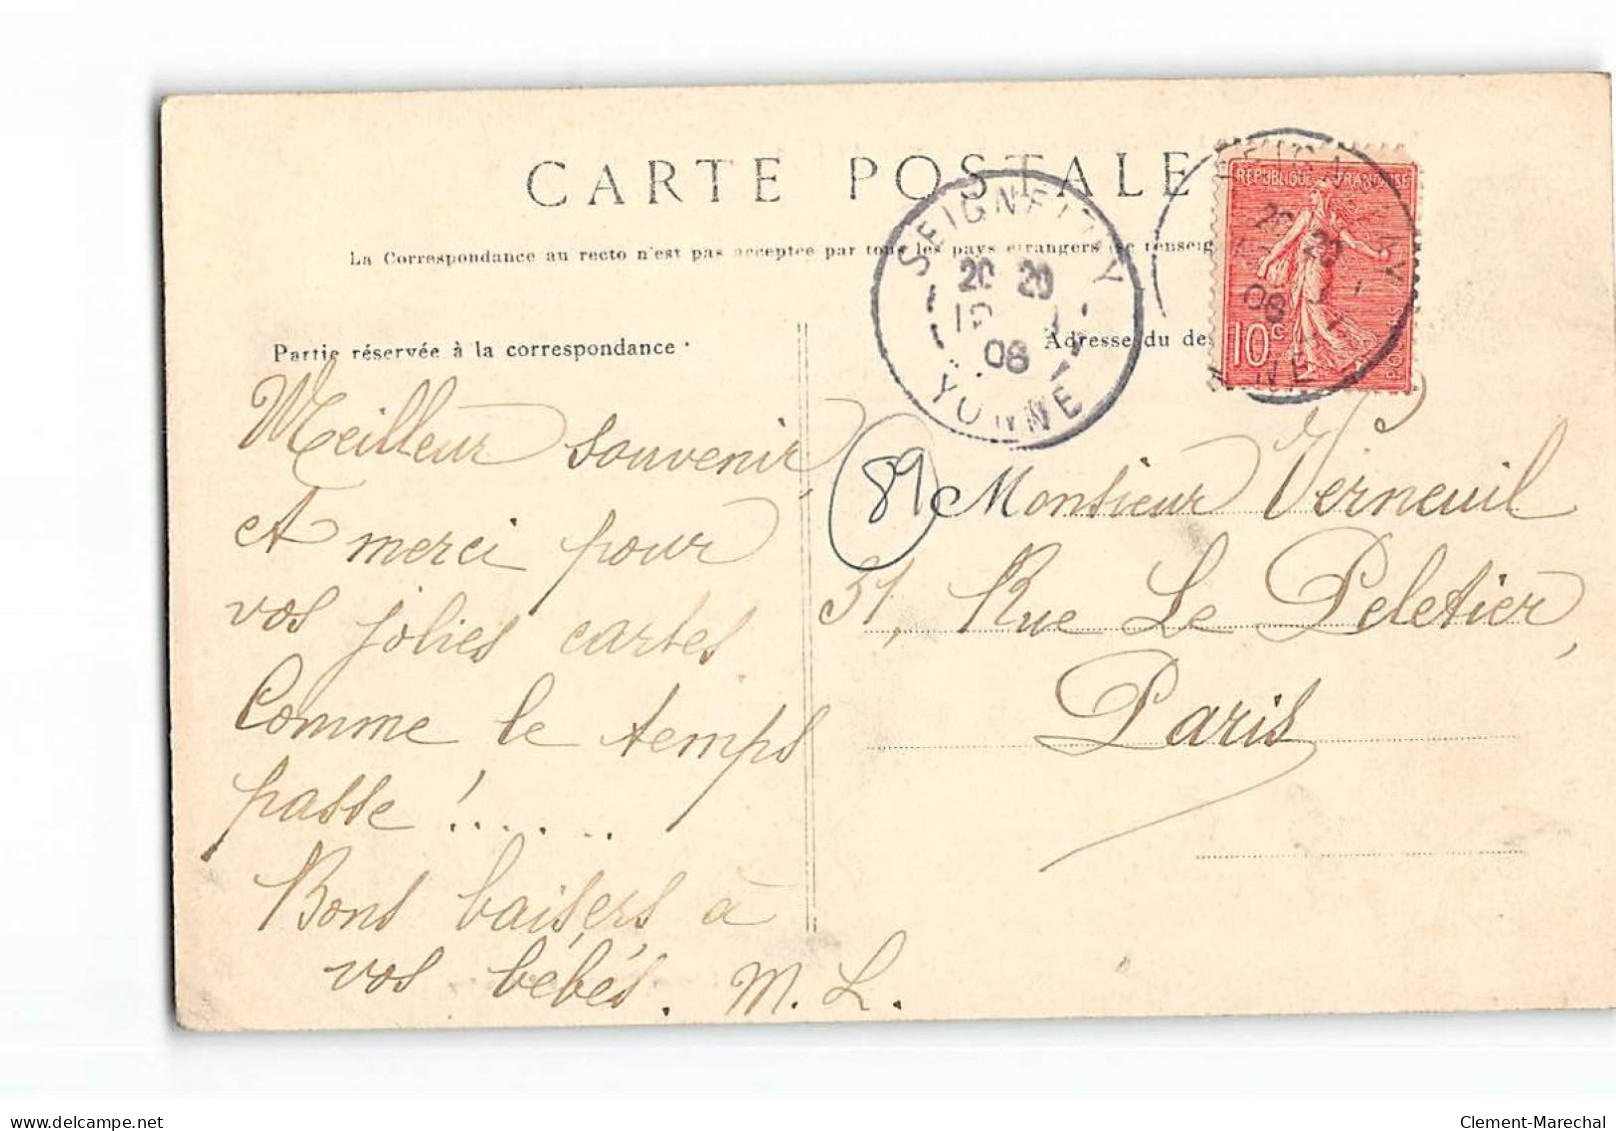 CARTE POSTALE
La Correspondance au recto n'est pas acceptée par tous les pays étrangers (se renseig
Partie réservée à la correspondance
Adresse du des
SEIGNELAY
20 20
08
YONNE
REPUBLIQUE FRANÇAISE
10c
POSTES
Meilleur souvenir,
et merci pour
vos jolies cartes
Comme le temps
passe !......
Bons baisers à
vos bébés. M. L.
89
Monsieur Verneuil
31, Rue Le Peletier,
Paris
delcampe.net
Clement-Marechal